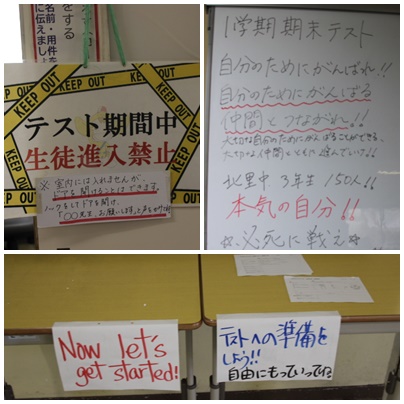 をする
名前・用件を
に伝えましょ
KEEP OUT
KEEP OUT
KEEP OUT
KEEP OUT
KEEP OUT
テスト期間中
生徒進入禁止
※室内には入れませんが、
ドアを開けることはできます。
ノックをしてドアを開け、
「○○先生、お願いします」と声をかけ
1学期期末テスト
自分のためにがんばれ!!
自分のためにがんばる
仲間とつながれ!!
大切な自分のためにがんばることができる、
大切な仲間とともに進んでいけ!!
北里中3年生150人!!
本気の自分!!
☆必死に戦え☆
Now let's
get started!
テストへの準備を
しよう!!
自由にもっていってね。